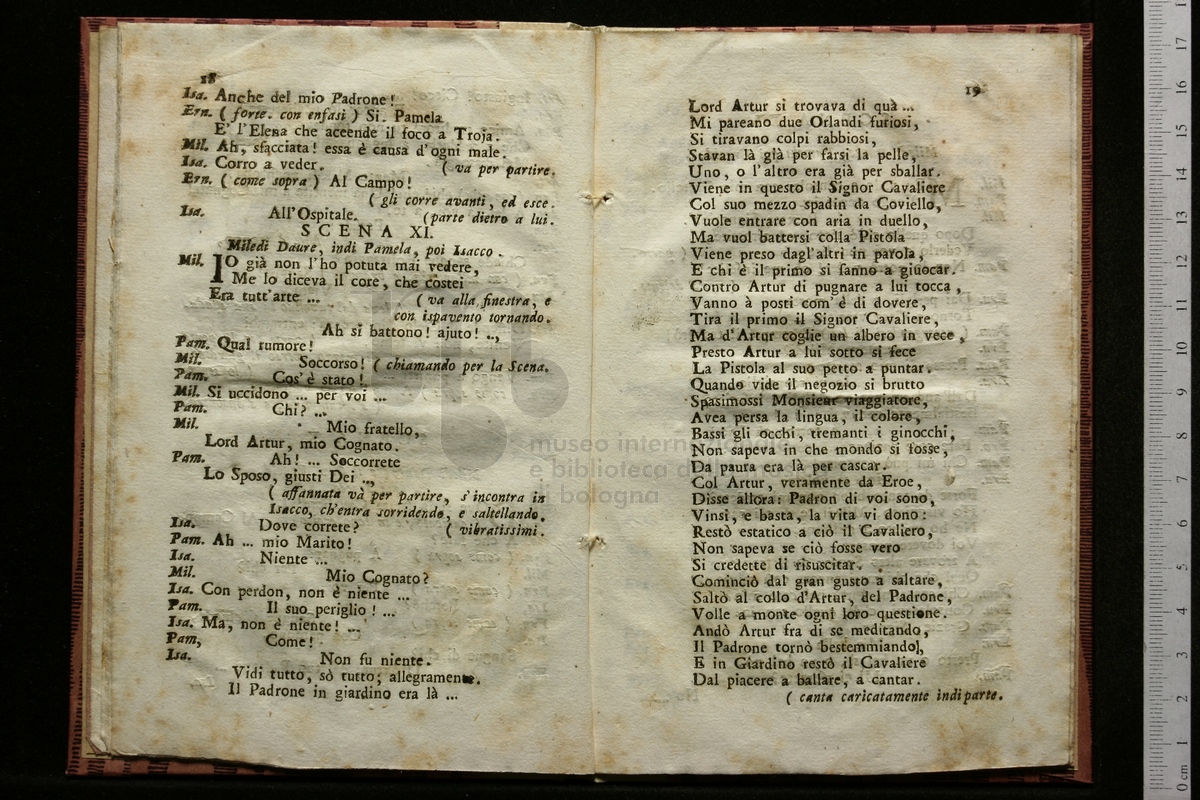 18
Isa. Anche del mio Padrone!
Ern. ( forte. con enfasi ) Si. Pamela
E' l'Elena che accende il foco a Troja.
Mil. Ah, sfacciata! essa è causa d'ogni male.
Isa. Corro a veder. ( va per partire.
Ern. ( come sopra ) Al Campo!
( gli corre avanti, ed esce.
Isa. All'Ospitale. (parte dietro a lui.
SCENA XI.
Miledi Daure, indi Pamela, poi Isacco.
Mil. IO già non l'ho potuta mai vedere,
Me lo diceva il core, che costei
Era tutt'arte ... ( va alla finestra, e
con ispavento tornando.
Ah si battono! ajuto! ..,
Pam. Qual rumore!
Mil. Soccorso! ( chiamando per la Scena.
Pam. Cos'è stato!
Mil. Si uccidono ... per voi ...
Pam. Chi? ...
Mil. Mio fratello,
Lord Artur, mio Cognato.
Pam. Ah! ... Soccorrete
Lo Sposo, giusti Dei ..,
( affannata và per partire, s'incontra in
Isacco, ch'entra sorridendo, e saltellando.
Isa. Dove correte? ( vibratissimi.
Pam. Ah ... mio Marito!
Isa. Niente ...
Mil. Mio Cognato?
Isa. Con perdon, non è niente ...
Pam. Il suo periglio! ...
Isa. Ma, non è niente! ...
Pam, Come!
Isa. Non fu niente.
Vidi tutto, sò tutto; allegramente.
Il Padrone in giardino era là ...
19
Lord Artur si trovava di quà ...
Mi pareano due Orlandi furiosi,
Si tiravano colpi rabbiosi,
Stavan là già per farsi la pelle,
Uno, o l'altro era già per sballar.
Viene in questo il Signor Cavaliere
Col suo mezzo spadin da Coviello,
Vuole entrare con aria in duello,
Ma vuol battersi colla Pistola
Viene preso dagl'altri in parola,
E chi è il primo si fanno a giuocar.
Contro Artur di pugnare a lui tocca,
Vanno à posti com'è di dovere,
Tira il primo il Signor Cavaliere,
Ma d'Artur coglie un albero in vece,
Presto Artur a lui sotto si fece
La Pistola al suo petto a puntar.
Quando vide il negozio si brutto
Spasimossi Monsieur viaggiatore,
Avea persa la lingua, il colore,
Bassi gli occhi, tremanti i ginocchi,
Non sapeva in che mondo si fosse,
Da paura era là per cascar.
Col Artur, veramente da Eroe,
Disse allora: Padron di voi sono,
Vinsi, e basta, la vita vi dono:
Restò estatico a ciò il Cavaliero,
Non sapeva se ciò fosse vero
Si credette di risuscitar.
Cominciò dal gran gusto a saltare,
Saltò al collo d'Artur, del Padrone,
Volle a monte ogni loro questione.
Andò Artur fra di se meditando,
Il Padrone tornò bestemmiando],
E in Giardino restò il Cavaliere
Dal piacere a ballare, a cantar.
( canta caricatamente indi parte.
museo internazionale
e biblioteca della musica
di bologna